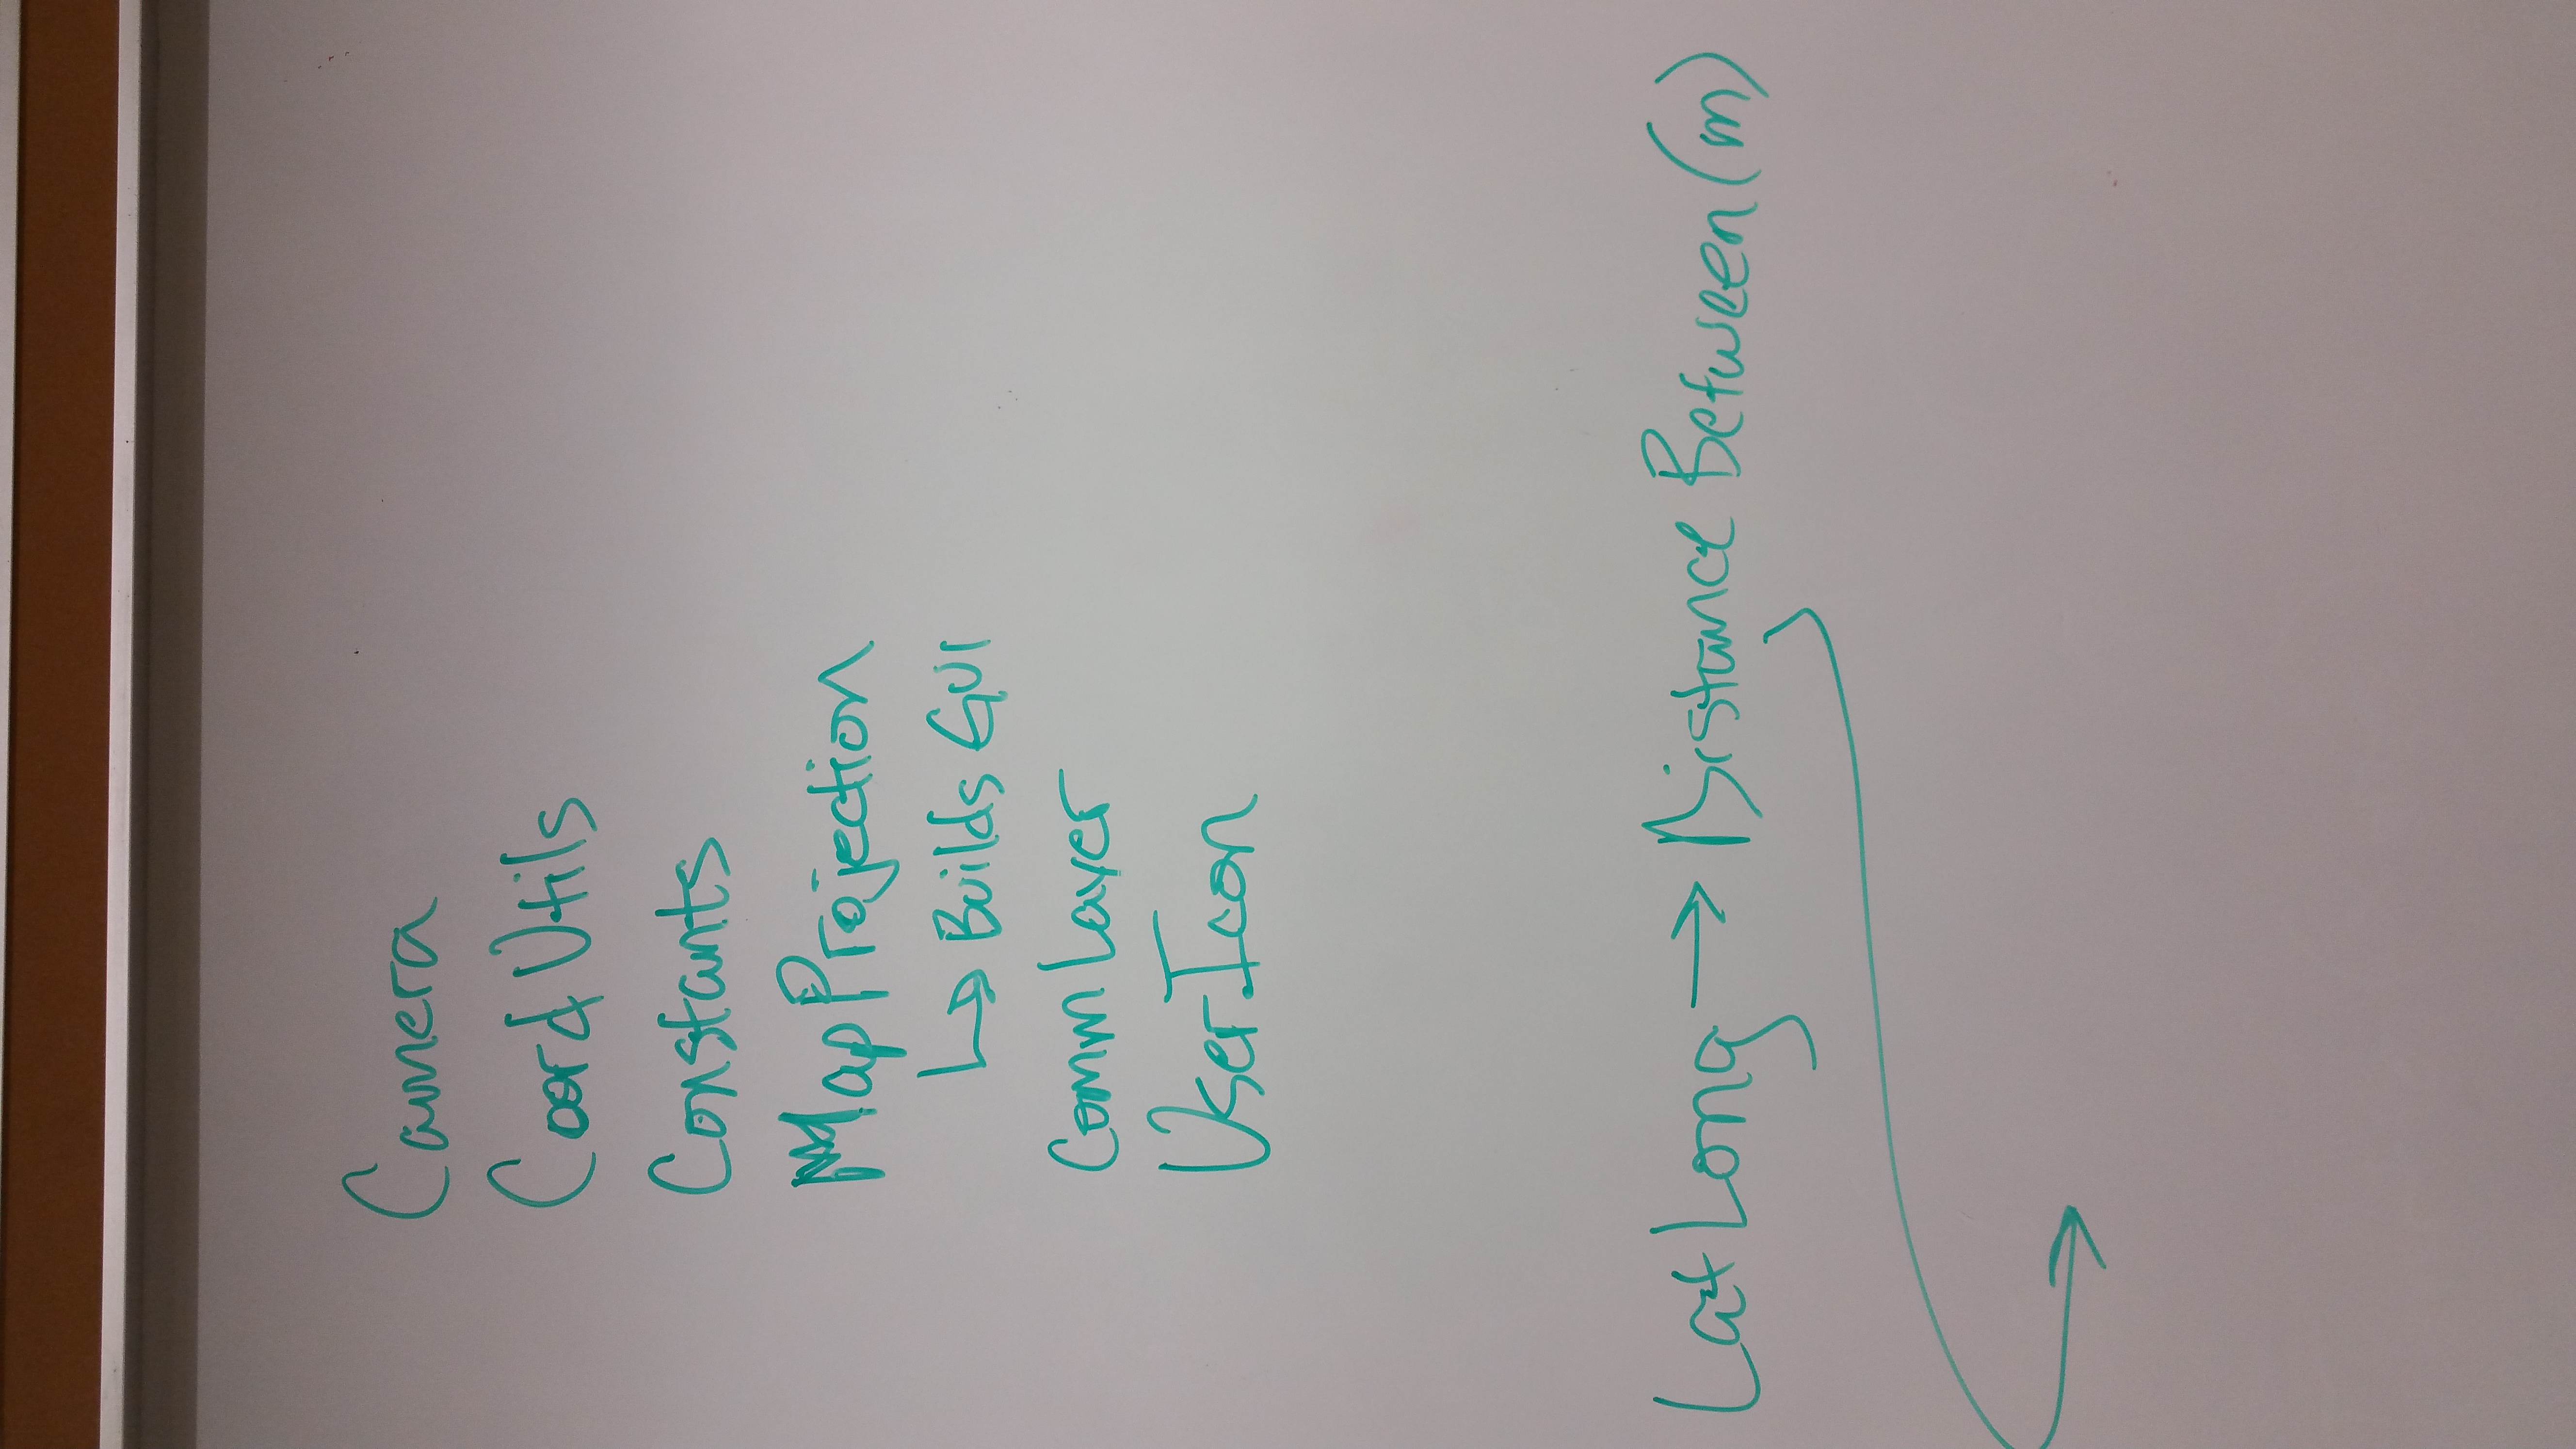 Camera
Coord Utils
Constants
MapProjection
↳ Builds GUI
Comm Layer
UserIcon
LatLong → Distance Between (m)
→